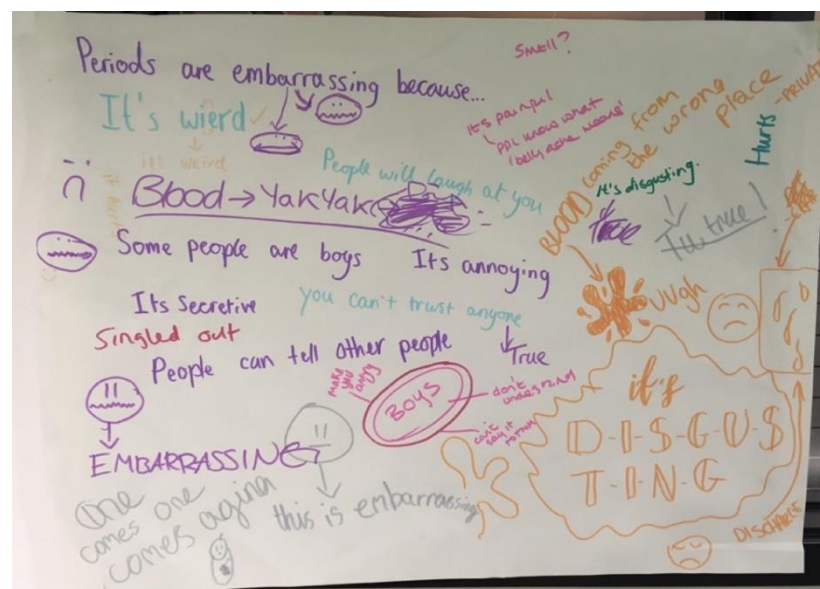 Smell?
Periods are embarrassing because...
It's wierd
it's weird
it hurts
It's painful
PPL know what
'belly ache means'
BLOOD coming from
the wrong
place
Hurts
-PRIVATE
People will laugh at you
It's disgusting.
True
true!
Blood → YakYak
Some people are boys
Its annoying
uugh
Its Secretive
you can't trust anyone
True
Singled out
People can tell other people
make
you
angry
BOYS
don't
understand
can't
say it
it's
D-I-S-G-U-S
T-I-N-G
EMBARRASSING
this is embarrassing
One
comes one
comes agina
DISCHARGE